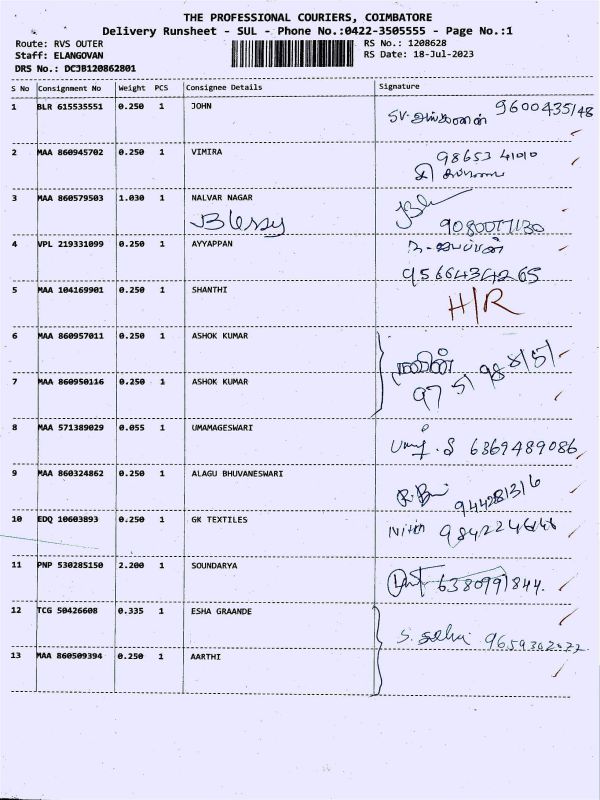 THE PROFESSIONAL COURIERS, COIMBATORE
Delivery Runsheet - SUL - Phone No.:0422-3505555 - Page No.:1
Route: RVS OUTER RS No.: 1208628
Staff: ELANGOVAN RS Date: 18-Jul-2023
DRS No.: DCJB120862801
S No Consignment No Weight PCS Consignee Details Signature
1 BLR 615535551 0.250 1 JOHN 9600435148
2 MAA 860945702 0.250 1 VIMIRA 98653 41010
3 MAA 860579503 1.030 1 NALVAR NAGAR
Blessy
4 VPL 219331099 0.250 1 AYYAPPAN
5 MAA 104169901 0.250 1 SHANTHI H/R
6 MAA 860957011 0.250 1 ASHOK KUMAR
7 MAA 860950116 0.250 1 ASHOK KUMAR
8 MAA 571389029 0.055 1 UMAMAGESWARI 6369489086
9 MAA 860324862 0.250 1 ALAGU BHUVANESWARI
10 EDQ 10603893 0.250 1 GK TEXTILES Nithin
11 PNP 530285150 2.200 1 SOUNDARYA 6380991844.
12 TCG 50426608 0.335 1 ESHA GRAANDE
13 MAA 860509394 0.250 1 AARTHI